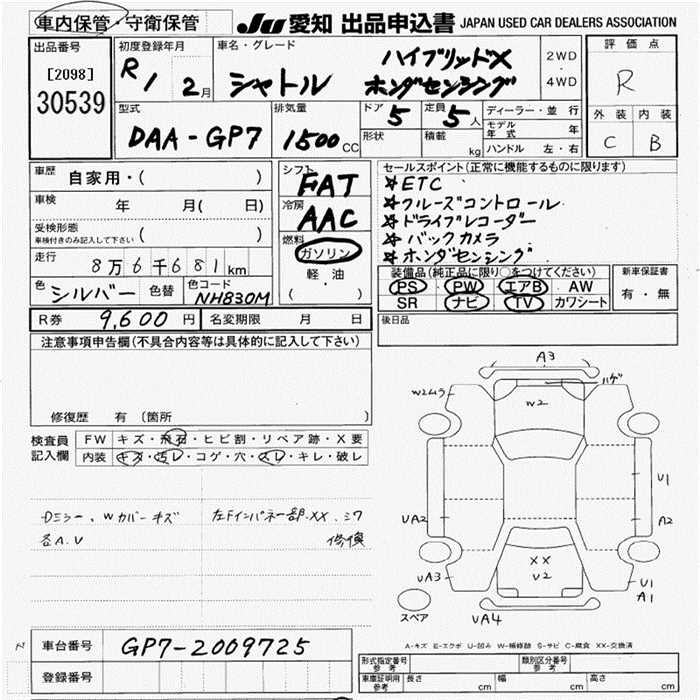 車内保管・守衛保管
JU 愛知 出品申込書 JAPAN USED CAR DEALERS ASSOCIATION
出品番号
[2098]
30539
初度登録年月
R1 2月
車名・グレード
シャトル
ハイブリッドX
ホンダセンシング
2WD
・
4WD
評価点
R
外装 内装
C B
型式
DAA-GP7
排気量
1500cc
ドア
5
定員
5人
形状
積載
kg
ディーラー・並行
モデル年式 年
ハンドル 左・右
車歴
自家用・( )
車検 年 月( 日)
受検形態
車検付きのみ記入して下さい ( )
走行
8万6千681km
色 シルバー 色替 色コード NH830M
シフト
FAT
冷房
AAC
燃料
ガソリン
軽・油
( ・ )
セールスポイント(正常に機能するものに限ります)
☆ETC
☆クルーズコントロール
☆ドライブレコーダー
☆バックカメラ
☆ホンダセンシング
装備品(純正品に限り○をつけてください)
PS PW エアB AW
SR ナビ TV カワシート
新車保証書
有・無
R券 9,600円 名変期限 月 日
後日品
注意事項申告欄(不具合内容等は具体的に記入して下さい)
修復歴 有(箇所 )
検査員
記入欄
FW キズ・飛石・ヒビ割・リペア跡・X要
内装 キズ・汚レ・コゲ・穴・スレ・キレ・破レ
Dミラー、Wカバーキズ
各A.U
左Fインパネ一部XX.シワ
修復
A3
W2ムラ
ハゲ
W2
U1
UA2
A2
XX
U2
UA3
U1
A1
UA4
スペア
A-キズ E-エクボ U-凹み W-補修跡 S-サビ C-腐食 XX-交換済
車台番号 GP7-2009725
登録番号
型式指定番号
参考
類別区分番号
参考
車庫証明用
参考
長さ cm 幅 cm 高さ cm